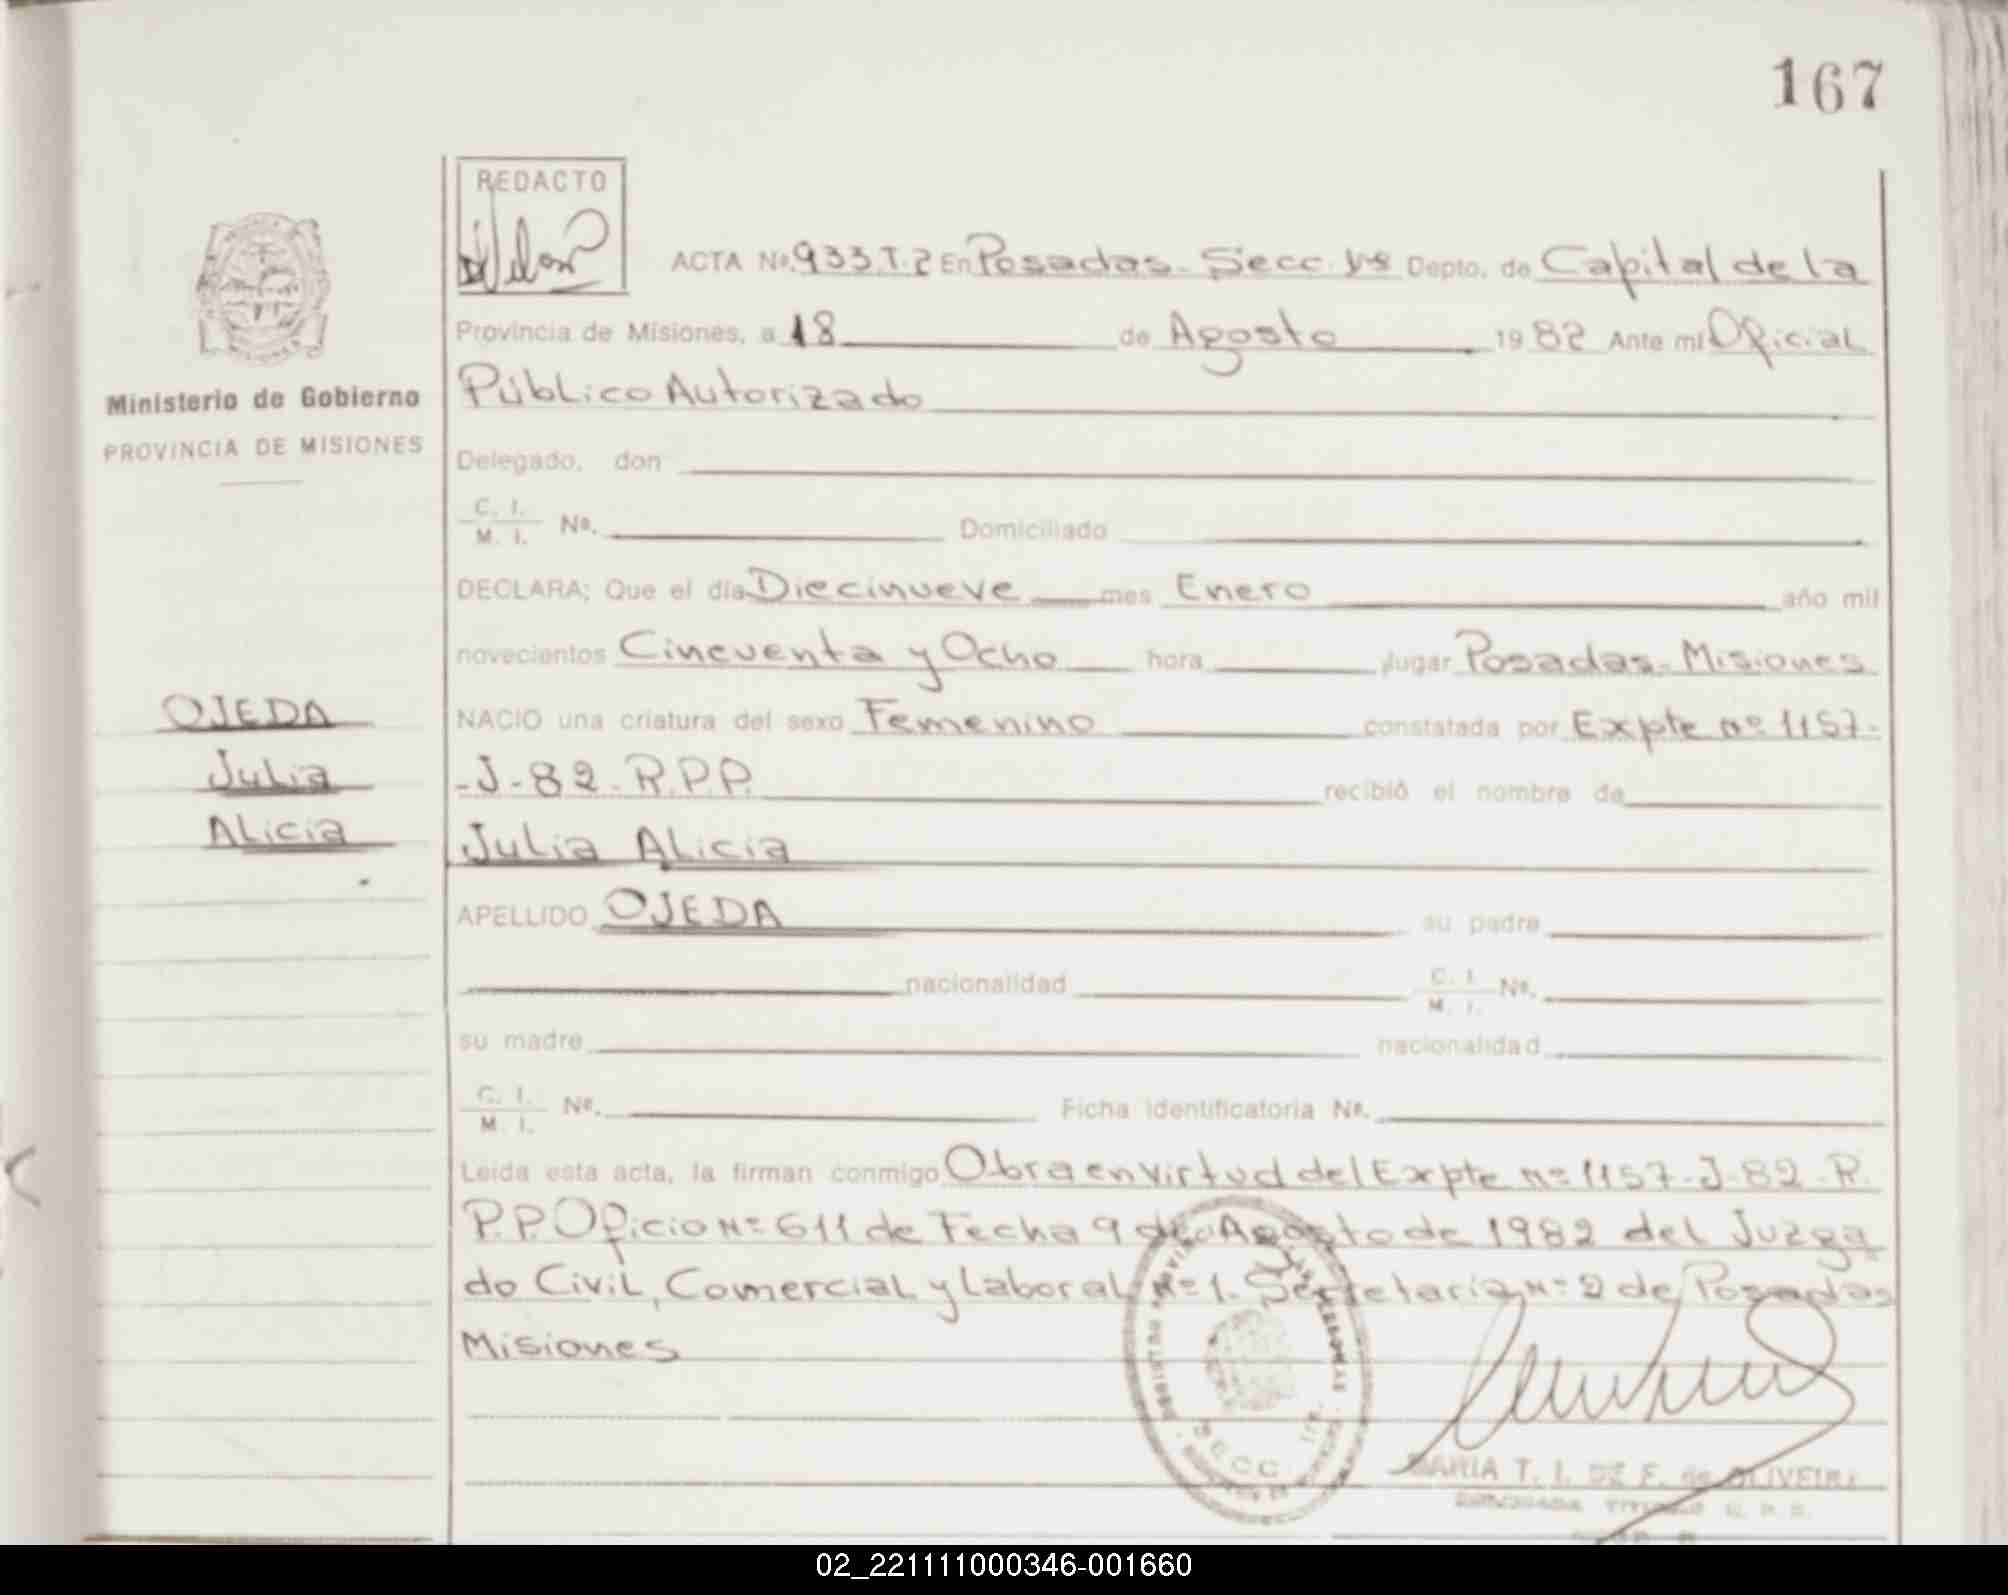 167
REDACTO
ACTA Nº. 933.T.2 En Posadas - Secc. 1ra Depto. de Capital de la
Provincia de Misiones, a 18 de Agosto 1982 Ante mí Oficial
Público Autorizado
Delegado, don
C. I.
M. I. Nº. Domiciliado
DECLARA; Que el día Diecinueve mes Enero año mil
novecientos Cincuenta y Ocho hora lugar Posadas - Misiones
NACIO una criatura del sexo Femenino constatada por Expte nº 1157-
-J-82-R.P.P. recibió el nombre de
Julia Alicia
APELLIDO OJEDA su padre
nacionalidad C. I.
M. I. Nº.
su madre nacionalidad
C. I.
M. I. Nº. Ficha identificatoria Nº.
Leída esta acta, la firman conmigo Obra en virtud del Expte nº 1157-J-82-R.
P.P. Oficio Nº 611 de Fecha 9 de Agosto de 1982 del Juzga
do Civil, Comercial y Laboral Nº 1. Secretaria Nº 2 de Posadas
Misiones
Ministerio de Gobierno
PROVINCIA DE MISIONES
OJEDA
Julia
Alicia
SECC. 1ra.
MARIA T. I. DE F. de OLIVEIRA
02_221111000346-001660